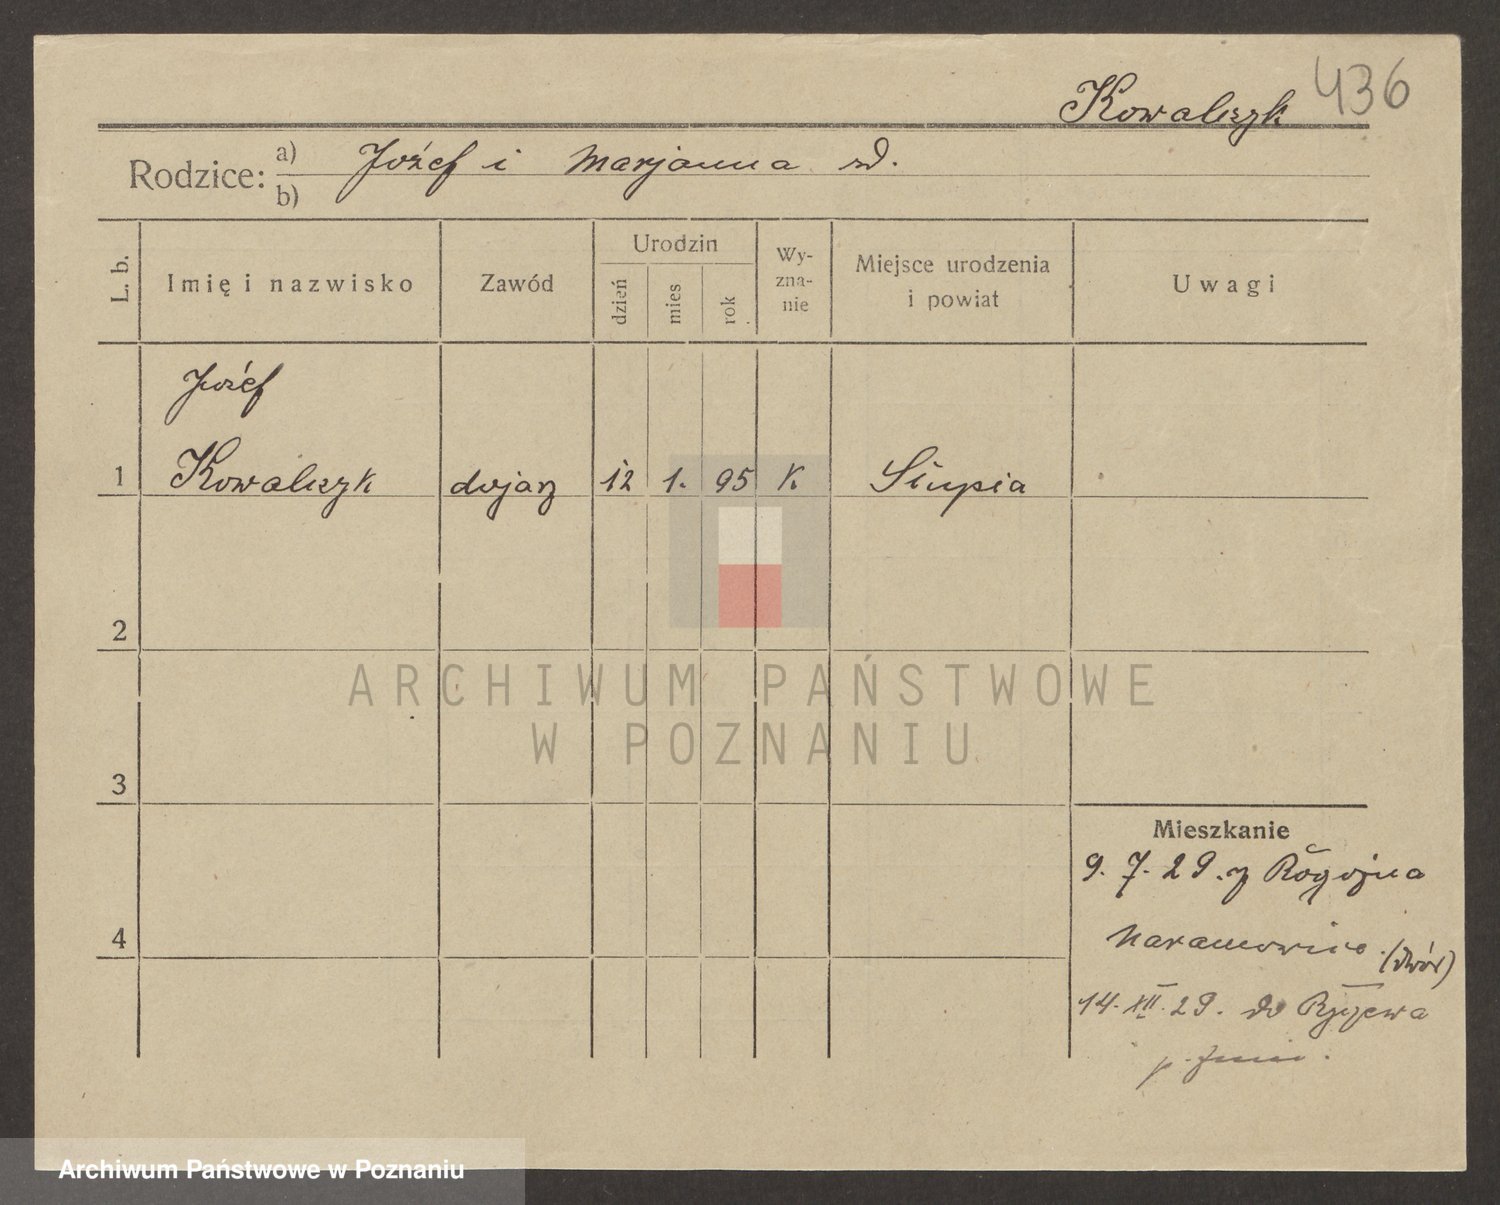 Kowalczyk 436
Rodzice: a) Józef i Marjanna
b)
L. b.
Imię i nazwisko
Zawód
Urodzin
dzień
mies
rok
Wy-
zna-
nie
Miejsce urodzenia
i powiat
Uwagi
Józef
1 Kowalczyk dojarz 12 1. 95 K. Słupia
2
ARCHIWUM PAŃSTWOWE
W POZNANIU
3
Mieszkanie
9. 7. 29. z Rogoźna
4
Naramowice (dwór)
14. XII. 29. do
Archiwum Państwowe w Poznaniu